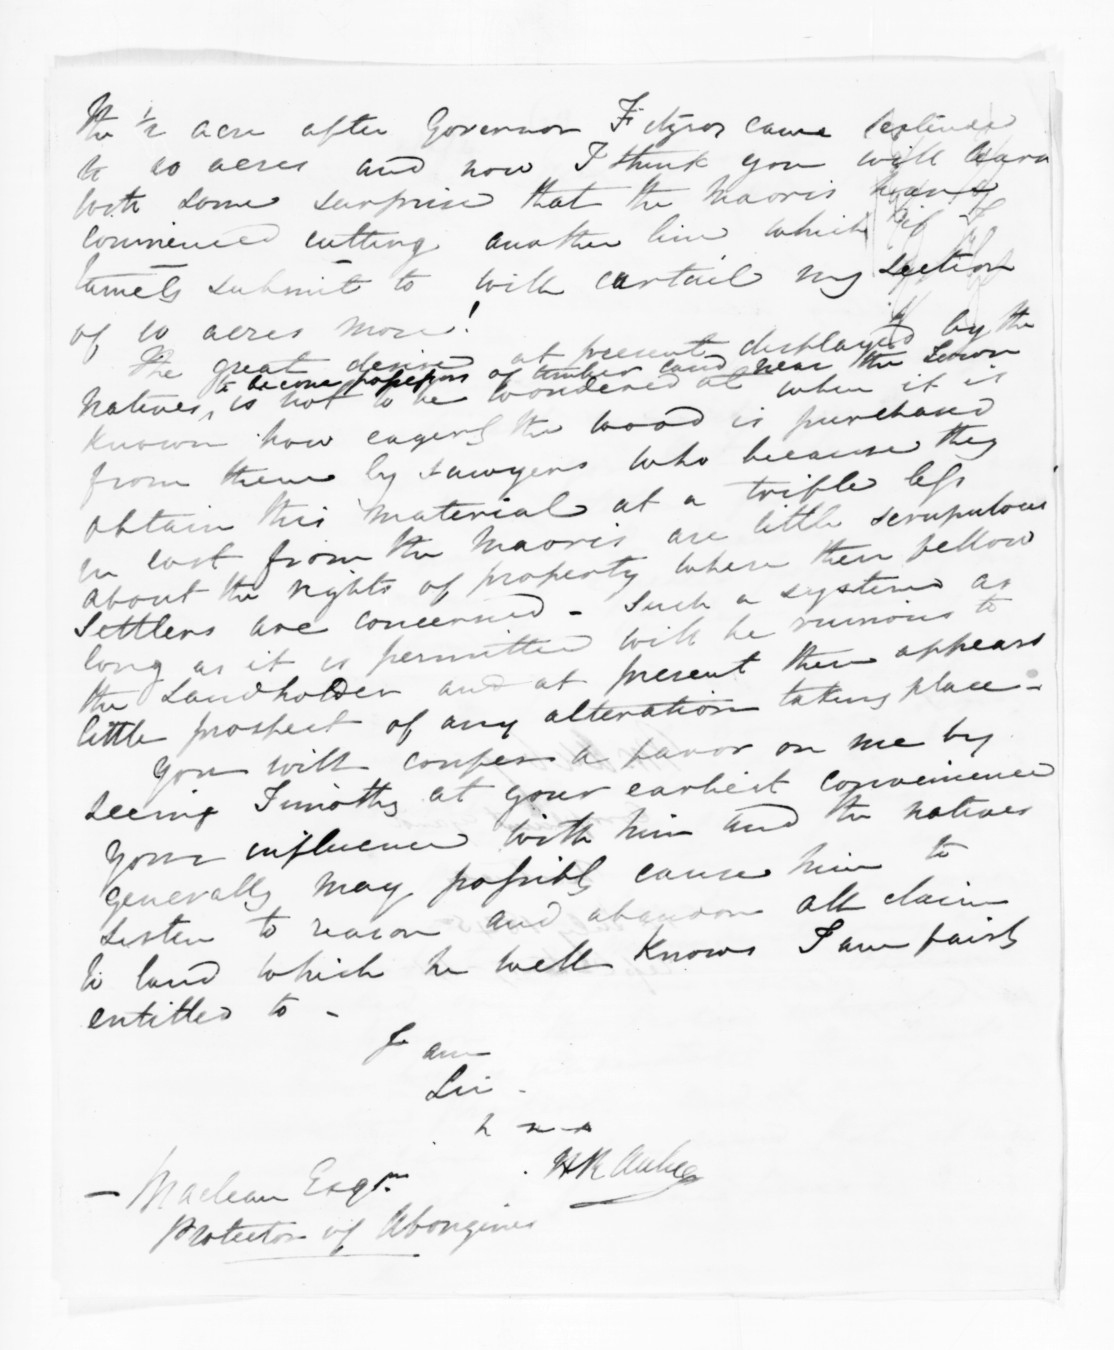 the ½ acre after Governor Fitzroy came extended
to 20 acres and now I think you will learn
with some surprise that the Maoris have
commenced cutting another line which if I
tamely submit to will curtail my section
of 10 acres more!
The great desire at present displayed by the
to become possessors of timber land near the Town
Natives, is not to be wondered at when it is
known how eagerly the wood is purchased
from them by sawyers who because they
obtain this material at a trifle less
in cost from the Maoris are little scrupulous
about the rights of property where their fellow
Settlers are concerned - Such a system as
long as it is permitted will be ruinous to
the Landholder and at present there appears
little prospect of any alteration taking place -
You will confer a favor on me by
seeing Timothy at your earliest convenience
Your influence with him and the natives
generally may possibly cause him to
listen to reason and abandon all claim
to land which he well knows I am fairly
entitled to -
I am
Sir -
H R Aubrey
- Maclean Esqre.
Protector of Aborigines